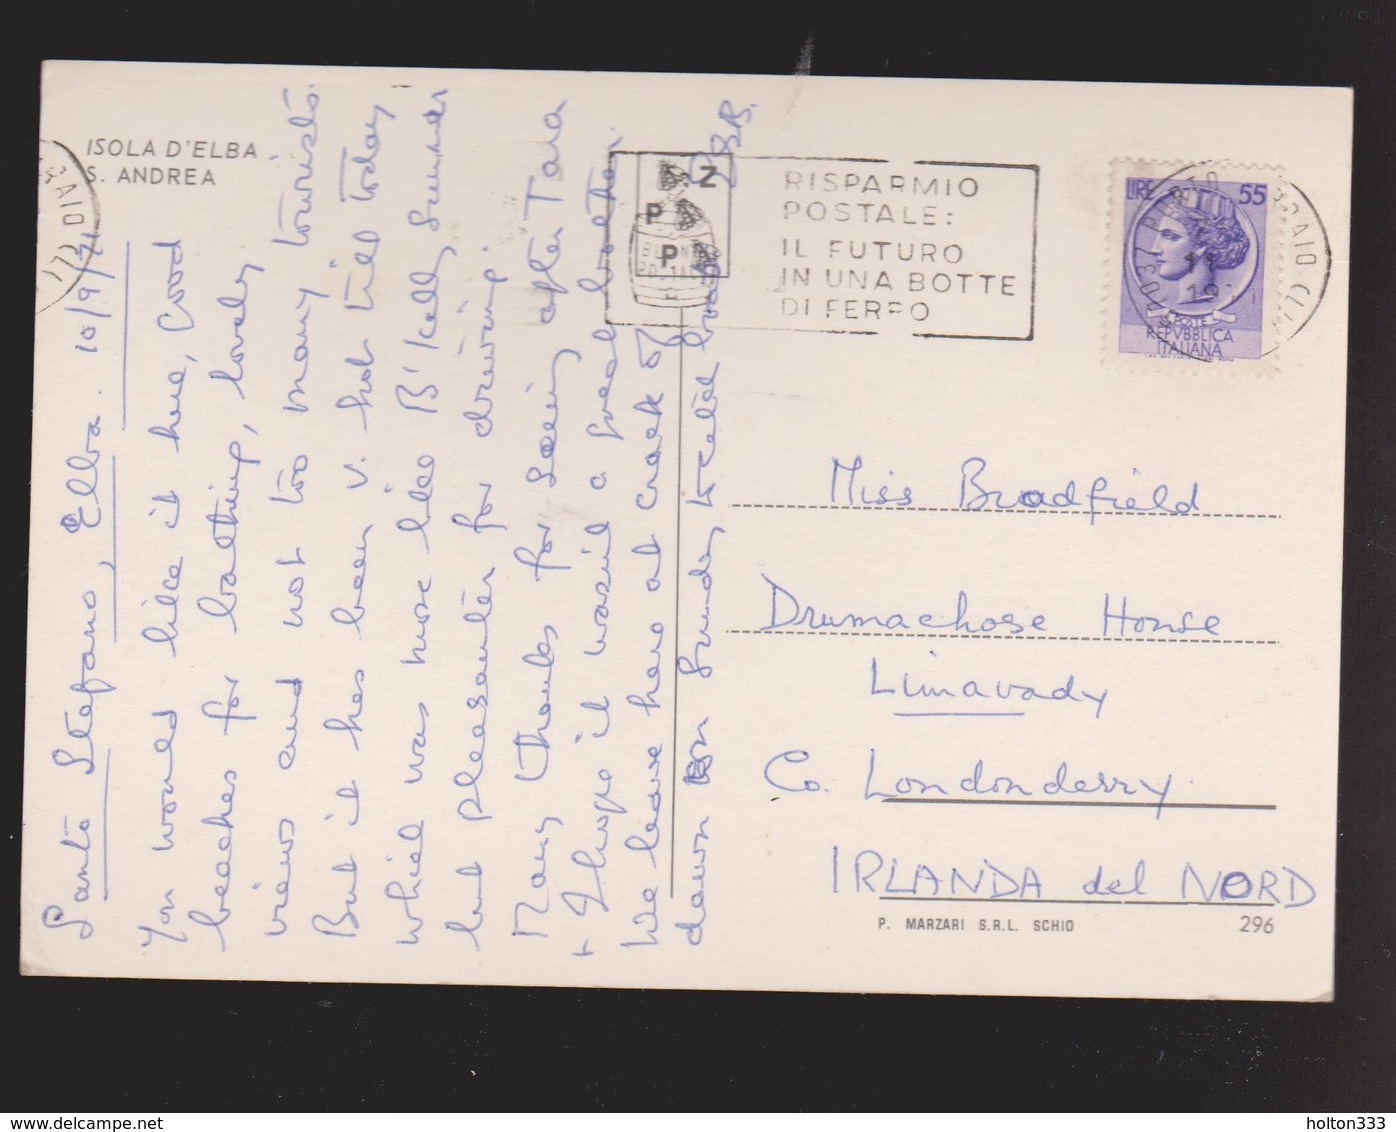 ISOLA D'ELBA
S. ANDREA
Santo Stefano, Elba. 10/9/71
You would like it here, Good
beaches for bathing, lovely
views and not too many tourists.
But it has been v. hot till today
which was more like B'Kelly Summer
but pleasanter for driving.
Many thanks for seeing after Tara
+ I hope it wasn't a great bother.
We leave here at crack of
dawn on Sunday to catch boat
RISPARMIO
POSTALE:
IL FUTURO
IN UNA BOTTE
DI FERRO
Z
P
P
BUONI
POSTALI
LIRE 55
POSTE
REPVBBLICA
ITALIANA
Miss Bradfield
Drumachose House
Limavady
Co. Londonderry.
IRLANDA del NORD
P. MARZARI S.R.L. SCHIO
296
delcampe.net
holton333